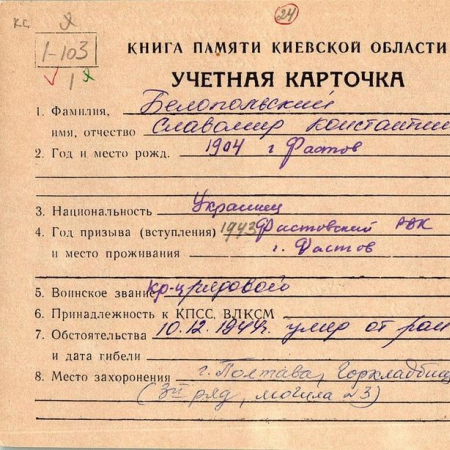 К.С. Я
24
1-103
1 Я
КНИГА ПАМЯТИ КИЕВСКОЙ ОБЛАСТИ
УЧЕТНАЯ КАРТОЧКА
1. Фамилия, Белопольский
имя, отчество Славомир Константин
2. Год и место рожд. 1904 г Фастов
3. Национальность Украинец
4. Год призыва (вступления) 1943 Фастовский РВК
и место проживания г. Фастов
5. Воинское звание кр-ц рядового
6. Принадлежность к КПСС, ВЛКСМ
7. Обстоятельства 10.12.1944г. умер от ран
и дата гибели
8. Место захоронения г. Полтава, Горкладбищ
(3й ряд, могила 23)